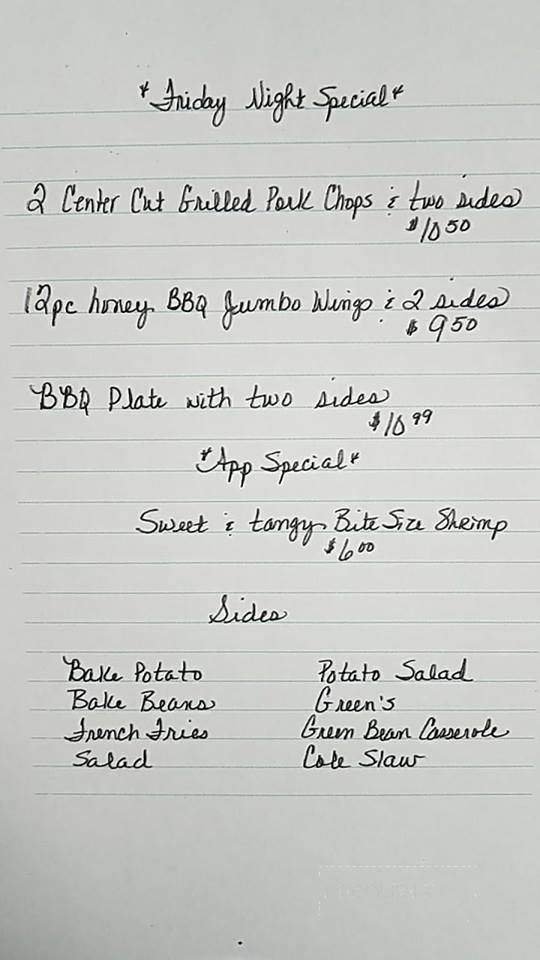 *Friday Night Special*
2 Center Cut Grilled Pork Chops & two sides
$10 50
12pc honey BBQ Jumbo Wings & 2 sides
$9 50
BBQ Plate with two sides
$10 99
*App Special*
Sweet & tangy Bite Size Shrimp
$6 00
Sides
Bake Potato Potato Salad
Bake Beans Green's
French Fries Green Bean Casserole
Salad Cole Slaw